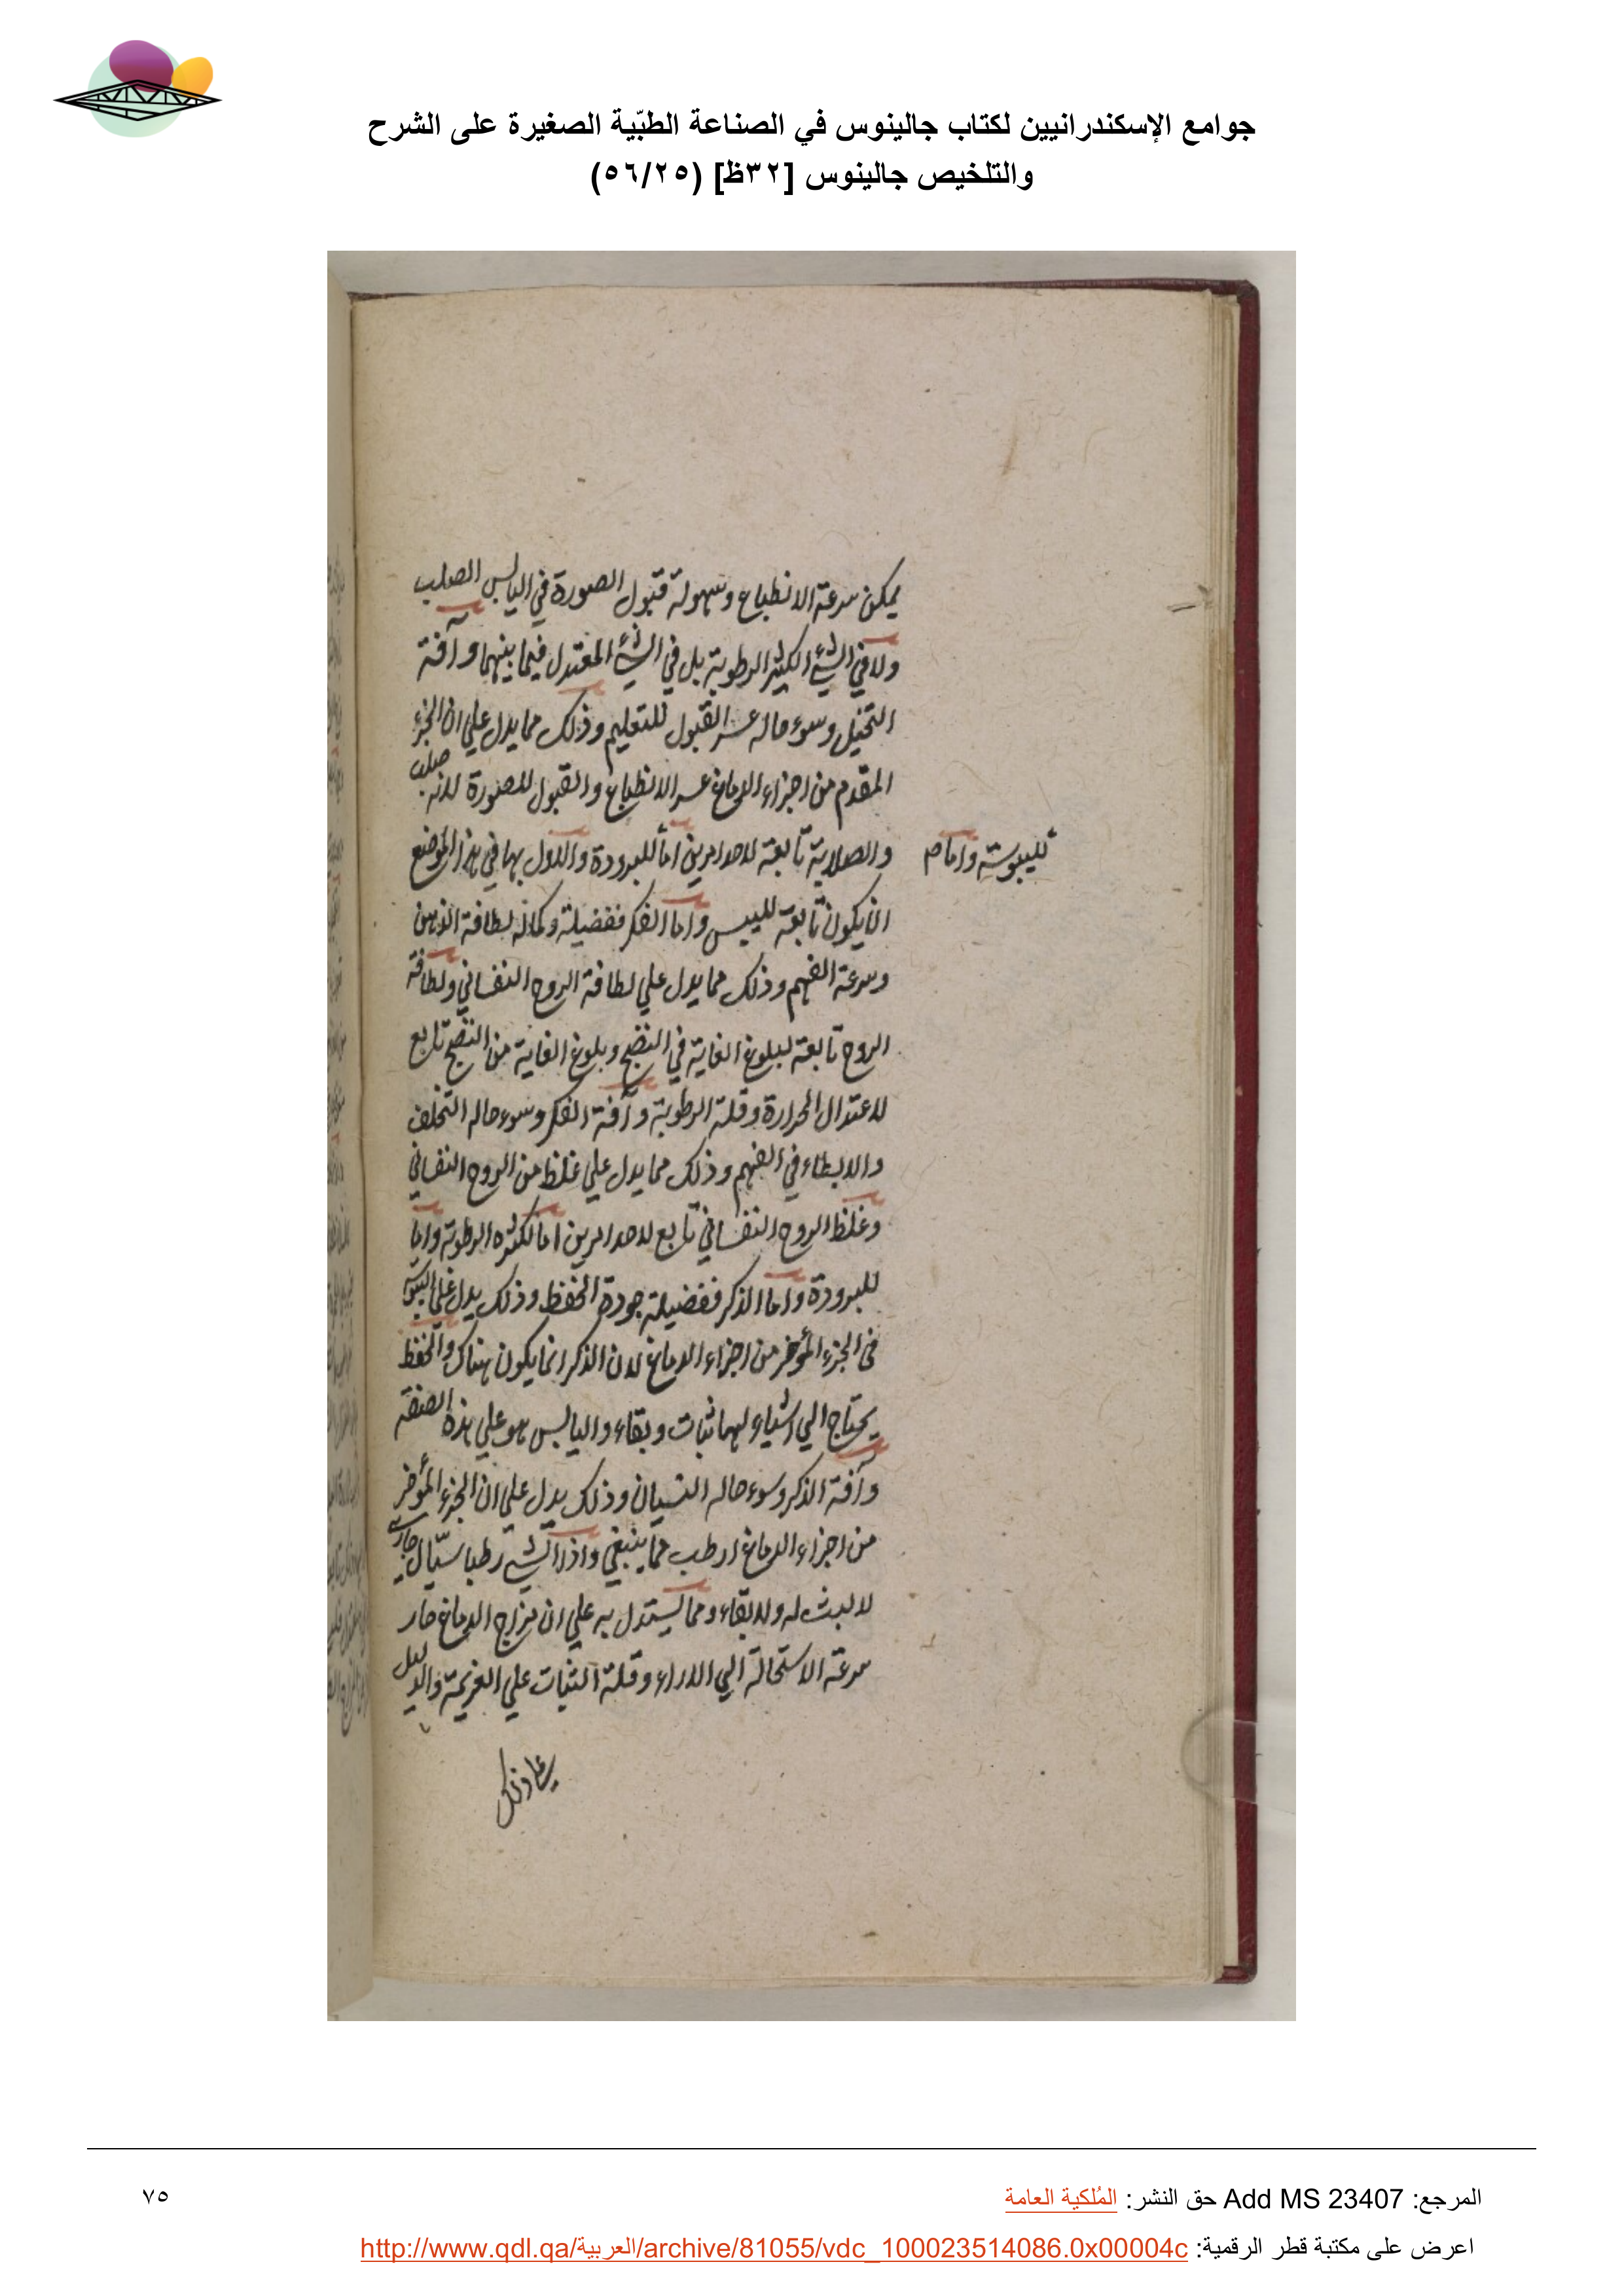 جوامع الإسكندرانيين لكتاب جالينوس في الصناعة الطبّية الصغيرة على الشرح
والتلخيص جالينوس [٣٢ظ] (٥٦/٢٥)
يمكن سرعة الانطباع وسهولة قبول الصورة في اليابس الصلب
ولا في الشيء الكثير الرطوبة بل في الشيء المعتدل فيما بينهما وآفة
التخيل وسوء حاله عسر القبول للتعليم وذلك مما يدل علي ان الجزء
المقدم من اجزاء الدماغ عسر الانطباع والقبول للصورة لانه صلب
والصلابة تابعة لاحد امرين اما للبرودة والاول بها في هذا الموضع
لليبوسة واما م
ان يكون تابعة لليبس واما الفكر ففضيلته وكماله لطافة الذهن
وسرعة الفهم وذلك مما يدل علي لطافة الروح النفساني ولطافة
الروح تابعة لبلوغ الغاية في النضج وبلوغ الغاية من النضج تابع
لاعتدال الحرارة وقلة الرطوبة وآفة الفكر وسوء حاله التخلف
والابطاء في الفهم وذلك مما يدل علي غلظ من الروح النفساني
وغلظ الروح النفساني تابع لاحد امرين اما لكثرة الرطوبة واما
للبرودة واما الذكر ففضيلته جودة الحفظ وذلك يدل علي اليبوسة
في الجزء المؤخر من اجزاء الدماغ لان الذكر انما يكون هناك والحفظ
يحتاج الي اشياء لها ثبات وبقاء واليابس هو علي هذه الصفة
وآفة الذكر وسوء حاله النسيان وذلك يدل علي ان الجزء المؤخر
من اجزاء الدماغ ارطب مما ينبغي واذ الشيء رطبا سيّال جاري
لا لبث له ولا بقاء ومما يستدل به علي ان مزاج الدماغ حار
سرعة الاستحالة الي الاراء وقلة الثبات علي العزيمة والدليل
علي ذلك
المرجع: Add MS 23407 حق النشر: المُلكية العامة
٧٥
اعرض على مكتبة قطر الرقمية: http://www.qdl.qa/العربية/archive/81055/vdc_100023514086.0x00004c